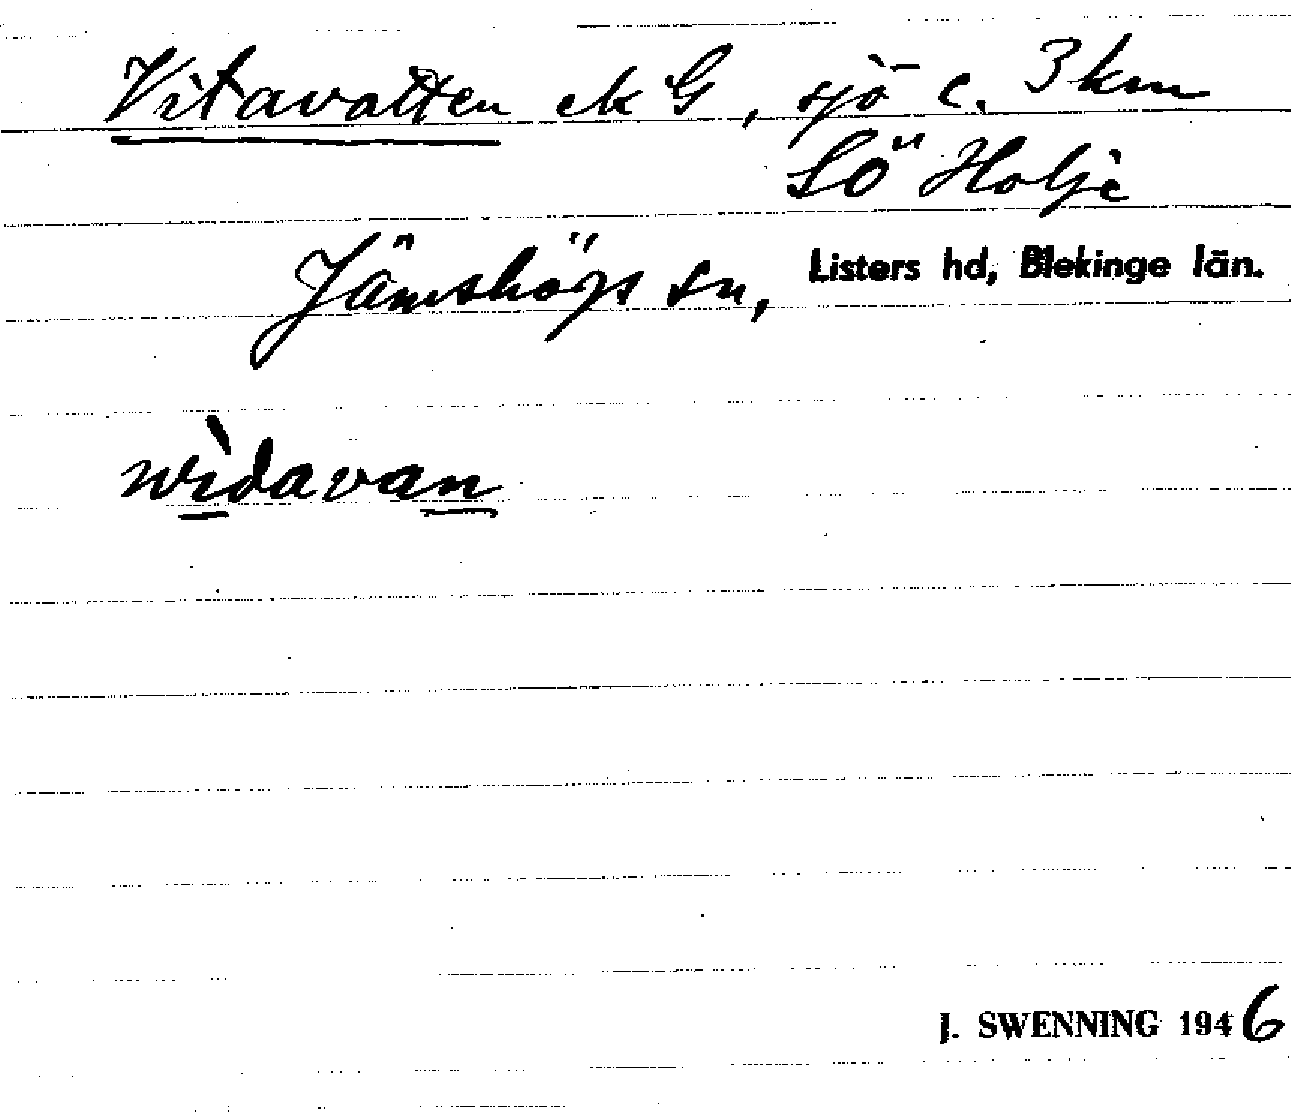 Vitavatten ek G, sjö c. 3 km
SÖ Holje
Jämshögs sn, Listers hd, Blekinge län.
wìdavan
J. SWENNING 1946